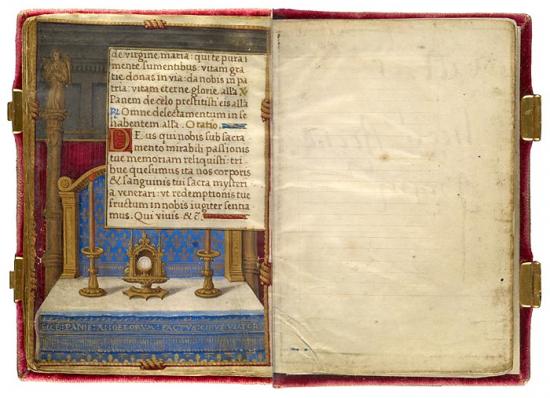 de virgine maria: qui te pura i
mente sumentibus: vitam gra
tie donas in via: da nobis in pa
tria: vitam eterne glorie. alla V
Panem de celo prestitisti eis alla
R Omne delectamentum in se
habentem alla. Oratio.
DEus qui nobis sub sacra
mento mirabili passionis
tue memoriam reliquisti: tri
bue quesumus ita nos corporis
& sanguinis tui sacra mysteri
a venerari: vt redemptionis tue
fructum in nobis iugiter sentia
mus. Qui viuis &c̄.
ECCE PANIS ANGELORVM FACTVS CIBVS VIATOR